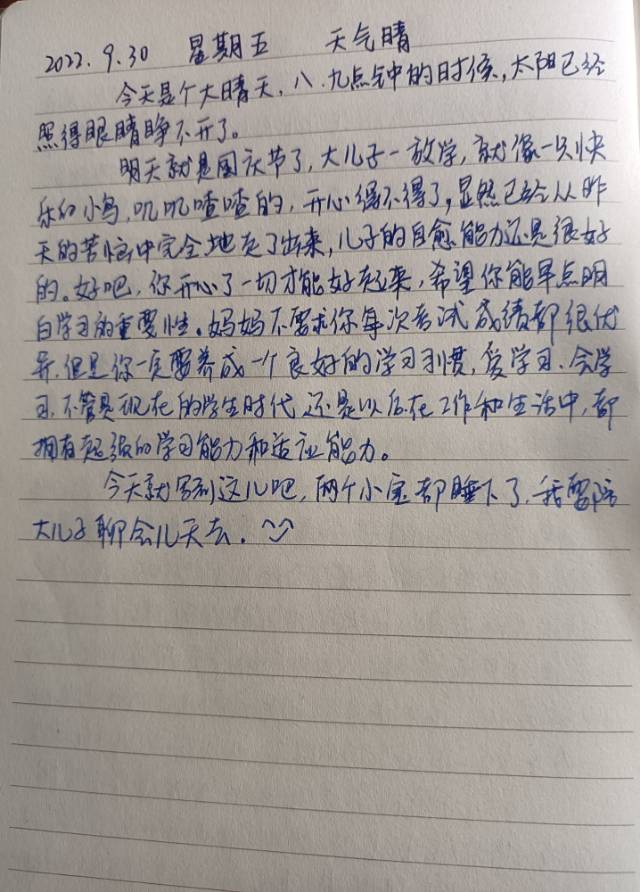 2022.9.30 星期五 天气晴
今天是个大晴天,八.九点钟的时候,太阳已经
照得眼睛睁不开了。
明天就是国庆节了,大儿子一放学,就像一只快
乐的小鸟,叽叽喳喳的,开心得不得了,显然已经从昨
天的苦恼中完全地走了出来,儿子的自愈能力还是很好
的。好吧,你开心了一切才能好起来,希望你能早点明
白学习的重要性。妈妈不要求你每次考试成绩都很优
异.但是你一定要养成一个良好的学习习惯,爱学习.会学
习.不管是现在的学生时代.还是以后在工作和生活中,都
拥有超强的学习能力和适应能力。
今天就写到这儿吧,两个小宝都睡下了,我要陪
大儿子聊会儿天去.